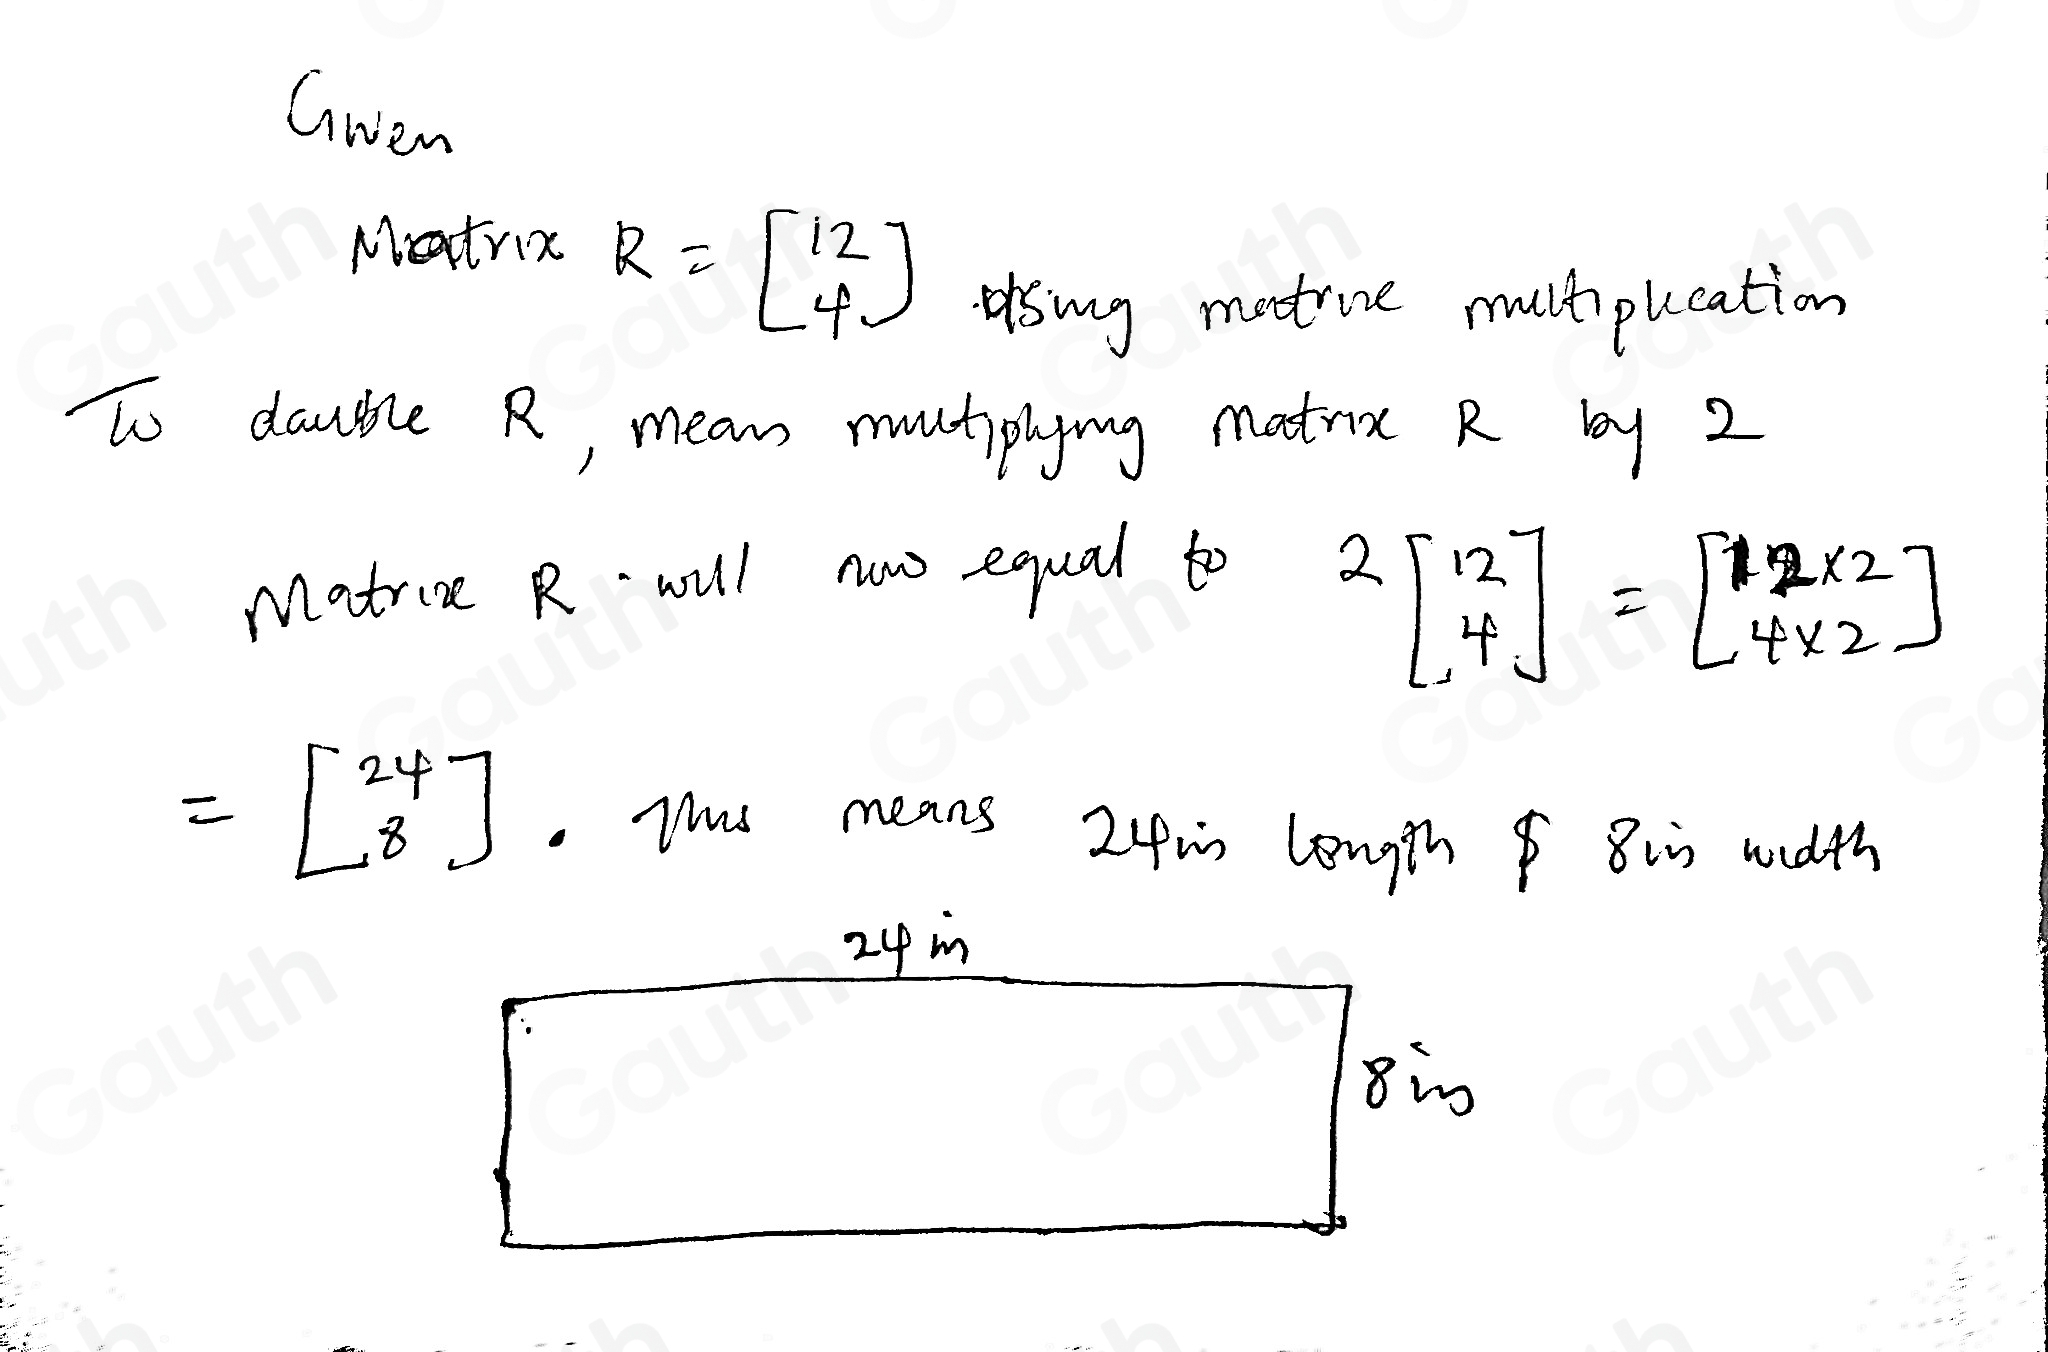 Given
Matrix R = [12
4] using matrix multiplication
To double R, means multiplying matrix R by 2
Matrix R will now equal to 2 [12
4] = [12x2
4x2]
= [24
8]. This means 24in length & 8in width
24 in
8 in
Gauth